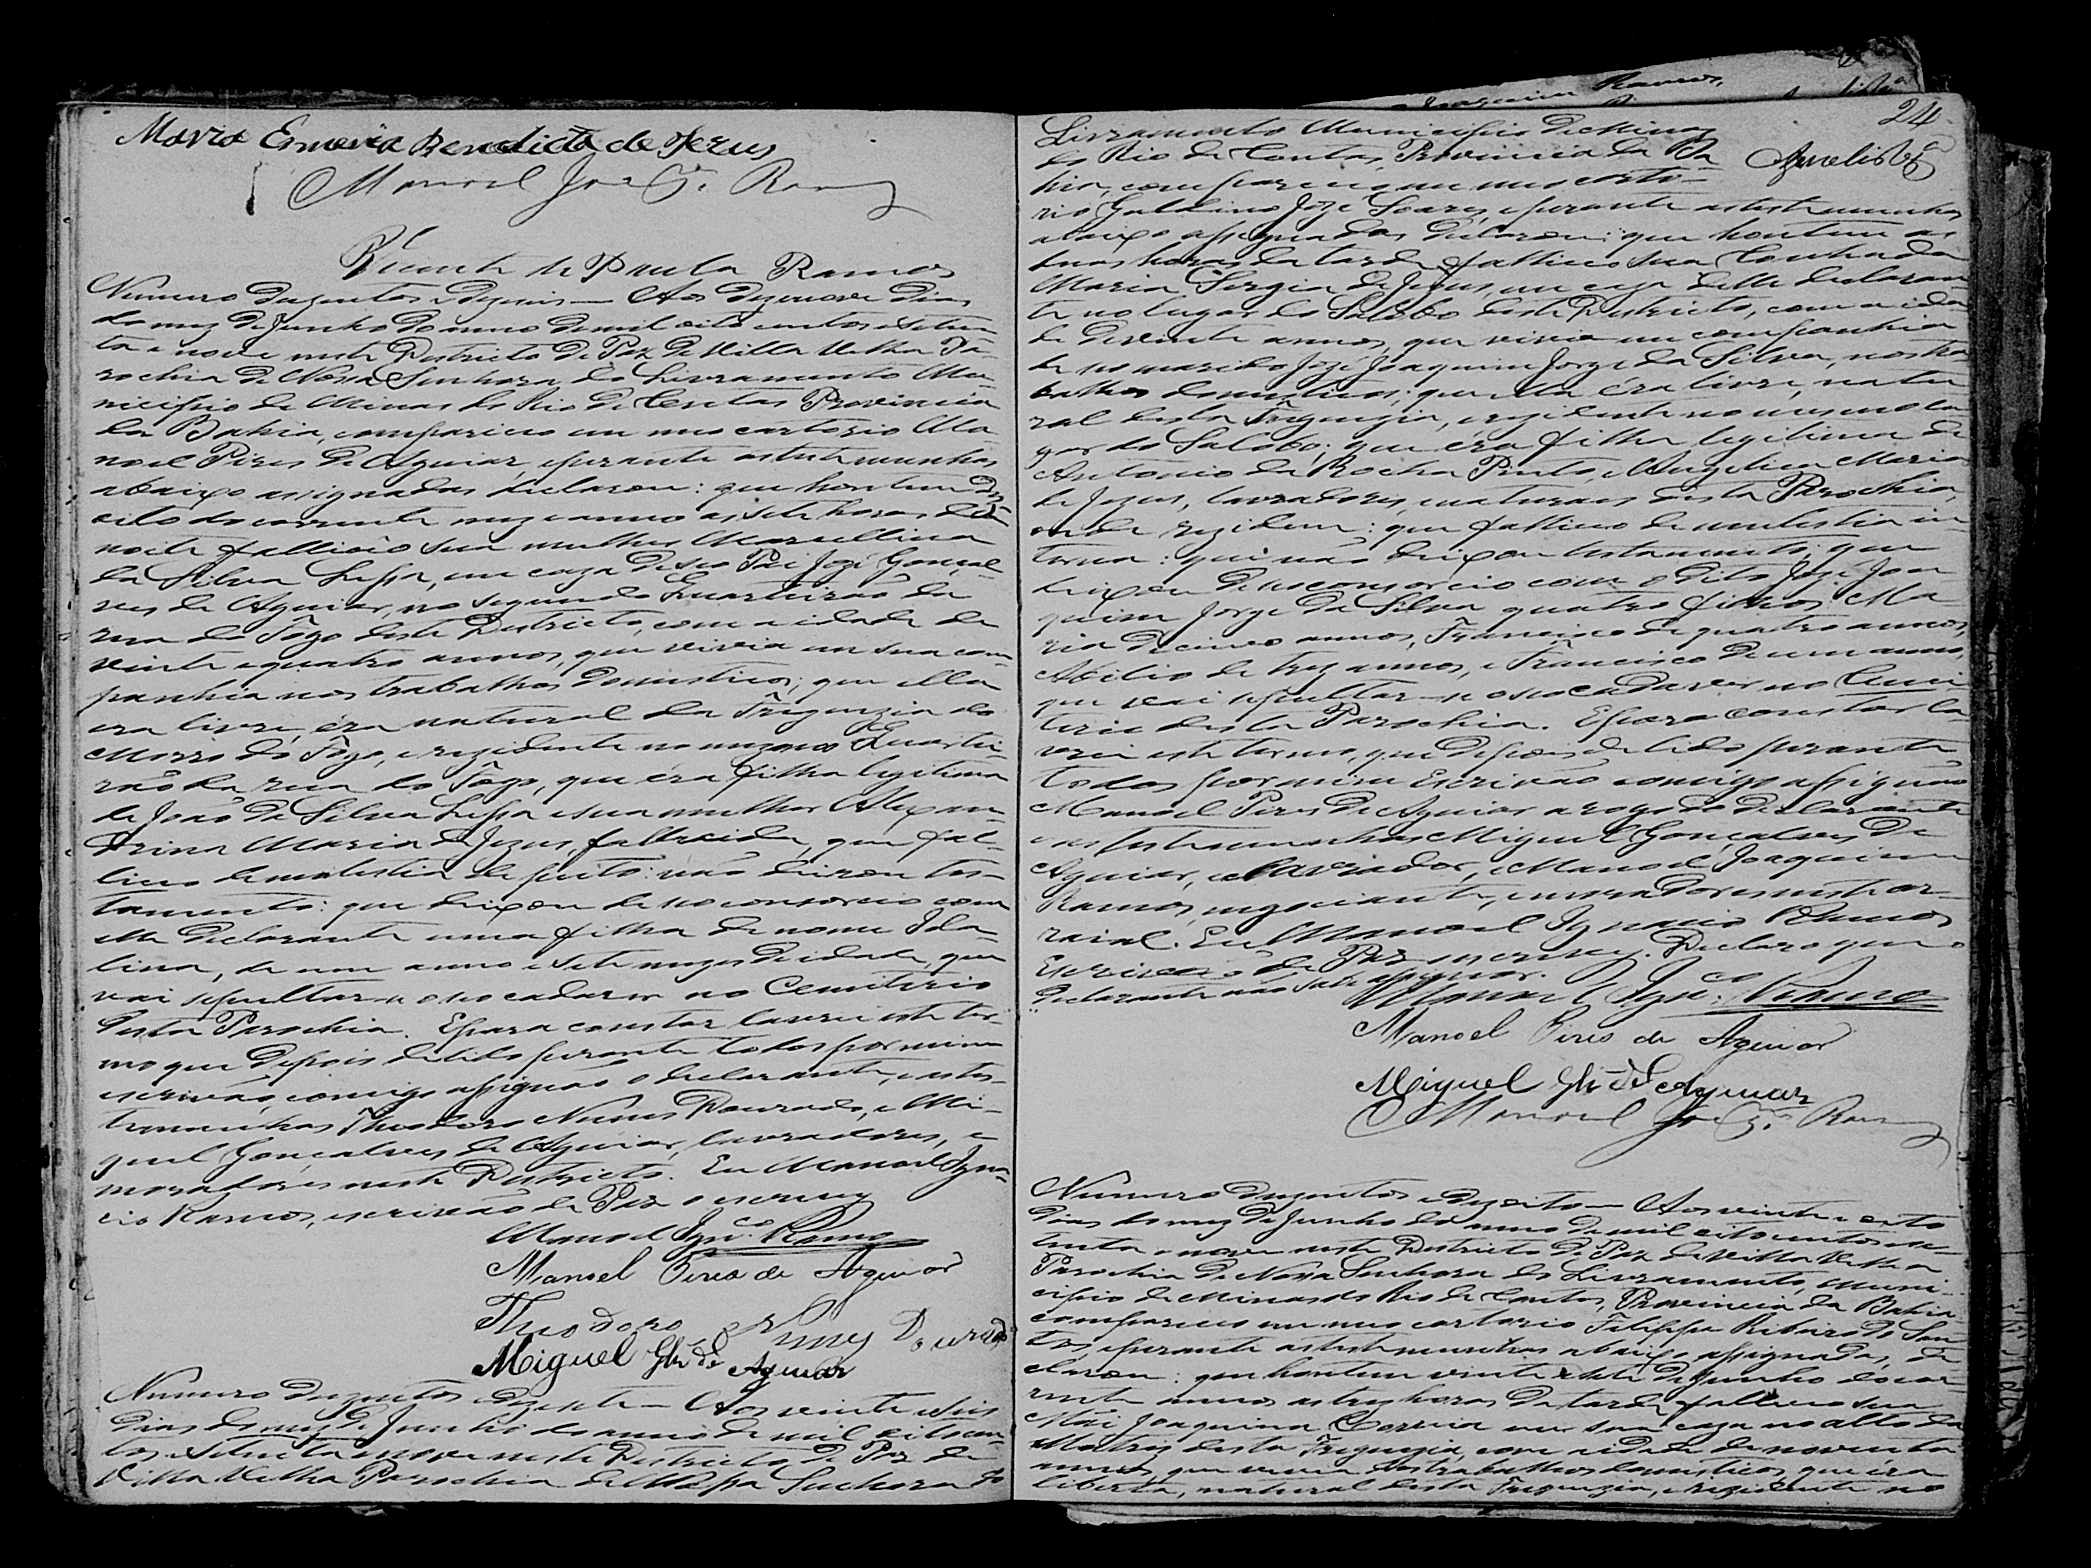 Maria Esmeria Benedicta de Jezus
Manoel Joaqm. Ramos
Vicente de Paula Ramos
Numero duzentos e dezeseis — Aos dezenove dias
do mez de Junho do anno de mil oito centos e seten-
ta e nove neste Districto de Paz de Villa Velha Pa-
rochia de Nossa Senhora do Livramento Mu-
nicipio de Minas do Rio de Contas Provincia
da Bahia, compareceo em meo cartorio Ma-
noel Pires de Aguiar, e perante as testemunhas
abaixo assignadas declarou: que hontem dez-
oito do corrente mez e anno as sete horas da
noite falliceo sua mulher Marcellina
da Silva Lessa, em caza de seo Pai José Gonçal-
ves de Aguiar, no segundo Quarteirão da
rua do Fôgo deste Districto, com a idade de
vinte e quatro annos, que vivia em sua com-
panhia nos trabalhos domesticos; que ella
era livre, éra natural da Freguezia do
Morro do Fôgo, e rezidente no mesmo Quartei-
rão da rua do Fôgo, que éra filha legitima
de João da Silva Lessa e sua mulher Alexan-
drina Maria de Jezus, fallecida, que fal-
liceo de molestia de peito: não deixou tes-
tamento: que deixou de seo consorcio com
elle declarante uma filha de nome Ida-
lina, de um anno e sete mezes de idade, que
vai sepultar-se o seo cadaver no Cemiterio
desta Parochia. E para constar lavrei este ter-
mo que depois de lido perante todos por mim
escrivão, comigo assignão o declarante, e as tes-
temunhas Theodoro Nunes Dourado, e Mi-
guel Gonçalves de Aguiar, lavradores, e
moradores neste Districto. Eu Manoel Igna-
cio Ramos, escrivão de Paz o escrevy
Manoel Ignco. Ramos
Manoel Pires de Aguiar
Theodoro Nunes Dourado
Miguel Glz de Aguiar
Numero duzentos e dezesete — Aos vinte e seis
dias do mez de Junho do anno de mil oito cen-
tos e setenta e nove neste Districto de Paz de
Villa Velha Parochia de Nossa Senhora do
24
Livramento Municipio de Minas
do Rio de Contas, Provincia da Ba
hia, compareceo em meo carto-
rio Galdino José Soares, e perante as testemunhas
abaixo assignadas declarou: que hontem as
duas horas da tarde falliceo sua Cunhada
Maria Sergia de Jezus, em caza delle declaran-
te no lugar do Salobo deste Districto, com a ida
de de vinte annos, que vivia em companhia
de seo marido José Joaquim Jorge da Silva, nos tra
balhos domesticos; que ella éra livre, natu
ral desta Freguezia, e rezidente no mesmo lu
gar do Salobo; que éra filha legitima de
Antonio da Rocha Pinto, e Angelica Maria
de Jezus, lavradores, e naturaes desta Parochia,
onde rezidem: que falliceo de molestia in
terna: que não deixou testamento; que
deixou de seo consorcio com o dito José Joa
quim Jorge da Silva quatro filhos: Ma
ria de cinco annos, Francisco de quatro annos,
Abilio de trez annos, e Francisco de um anno,
que vai sepultar-se o seo cadaver no Cemi
terio desta Parochia. E para constar la
vrei este termo, que depois de lido perante
todos por mim Escrivão comigo assignão
Manoel Pires de Aguiar a rogo do declarante
e as testemunhas Miguel Gonçalves de
Aguiar, Lavrador, e Manoel Joaquim
Ramos, negociante, e moradores neste ar-
raial. Eu Manoel Ignacio Ramos
Escrivão de Paz o escrevy. Declaro que o
declarante não sabe assignar.
Manoel Ignco. Ramos
Manoel Pires de Aguiar
Miguel Glz de Aguiar
Manoel Joaqm. Ramos
Numero duzentos e dezoito — Aos vinte e oito
dias do mez de Junho do anno de mil oito centos e se-
tenta e nove neste Districto de Paz de Villa Velha
Parochia de Nossa Senhora do Livramento, Muni-
cipio de Minas do Rio de Contas, Provincia da Bahia
compareceo em meo cartorio Felippe Ribeiro dos San
tos, e perante as testemunhas abaixo assignadas, de
clarou: que hontem vinte e sete de Junho do cor-
rente anno as trez horas da tarde falliceo sua
Mãi Joaquina Correia em sua caza no alto da
Matriz desta Freguezia, com a idade de noventa
annos, que vivia dos trabalhos domesticos, que éra
liberta, natural desta Freguezia, e rezidente no